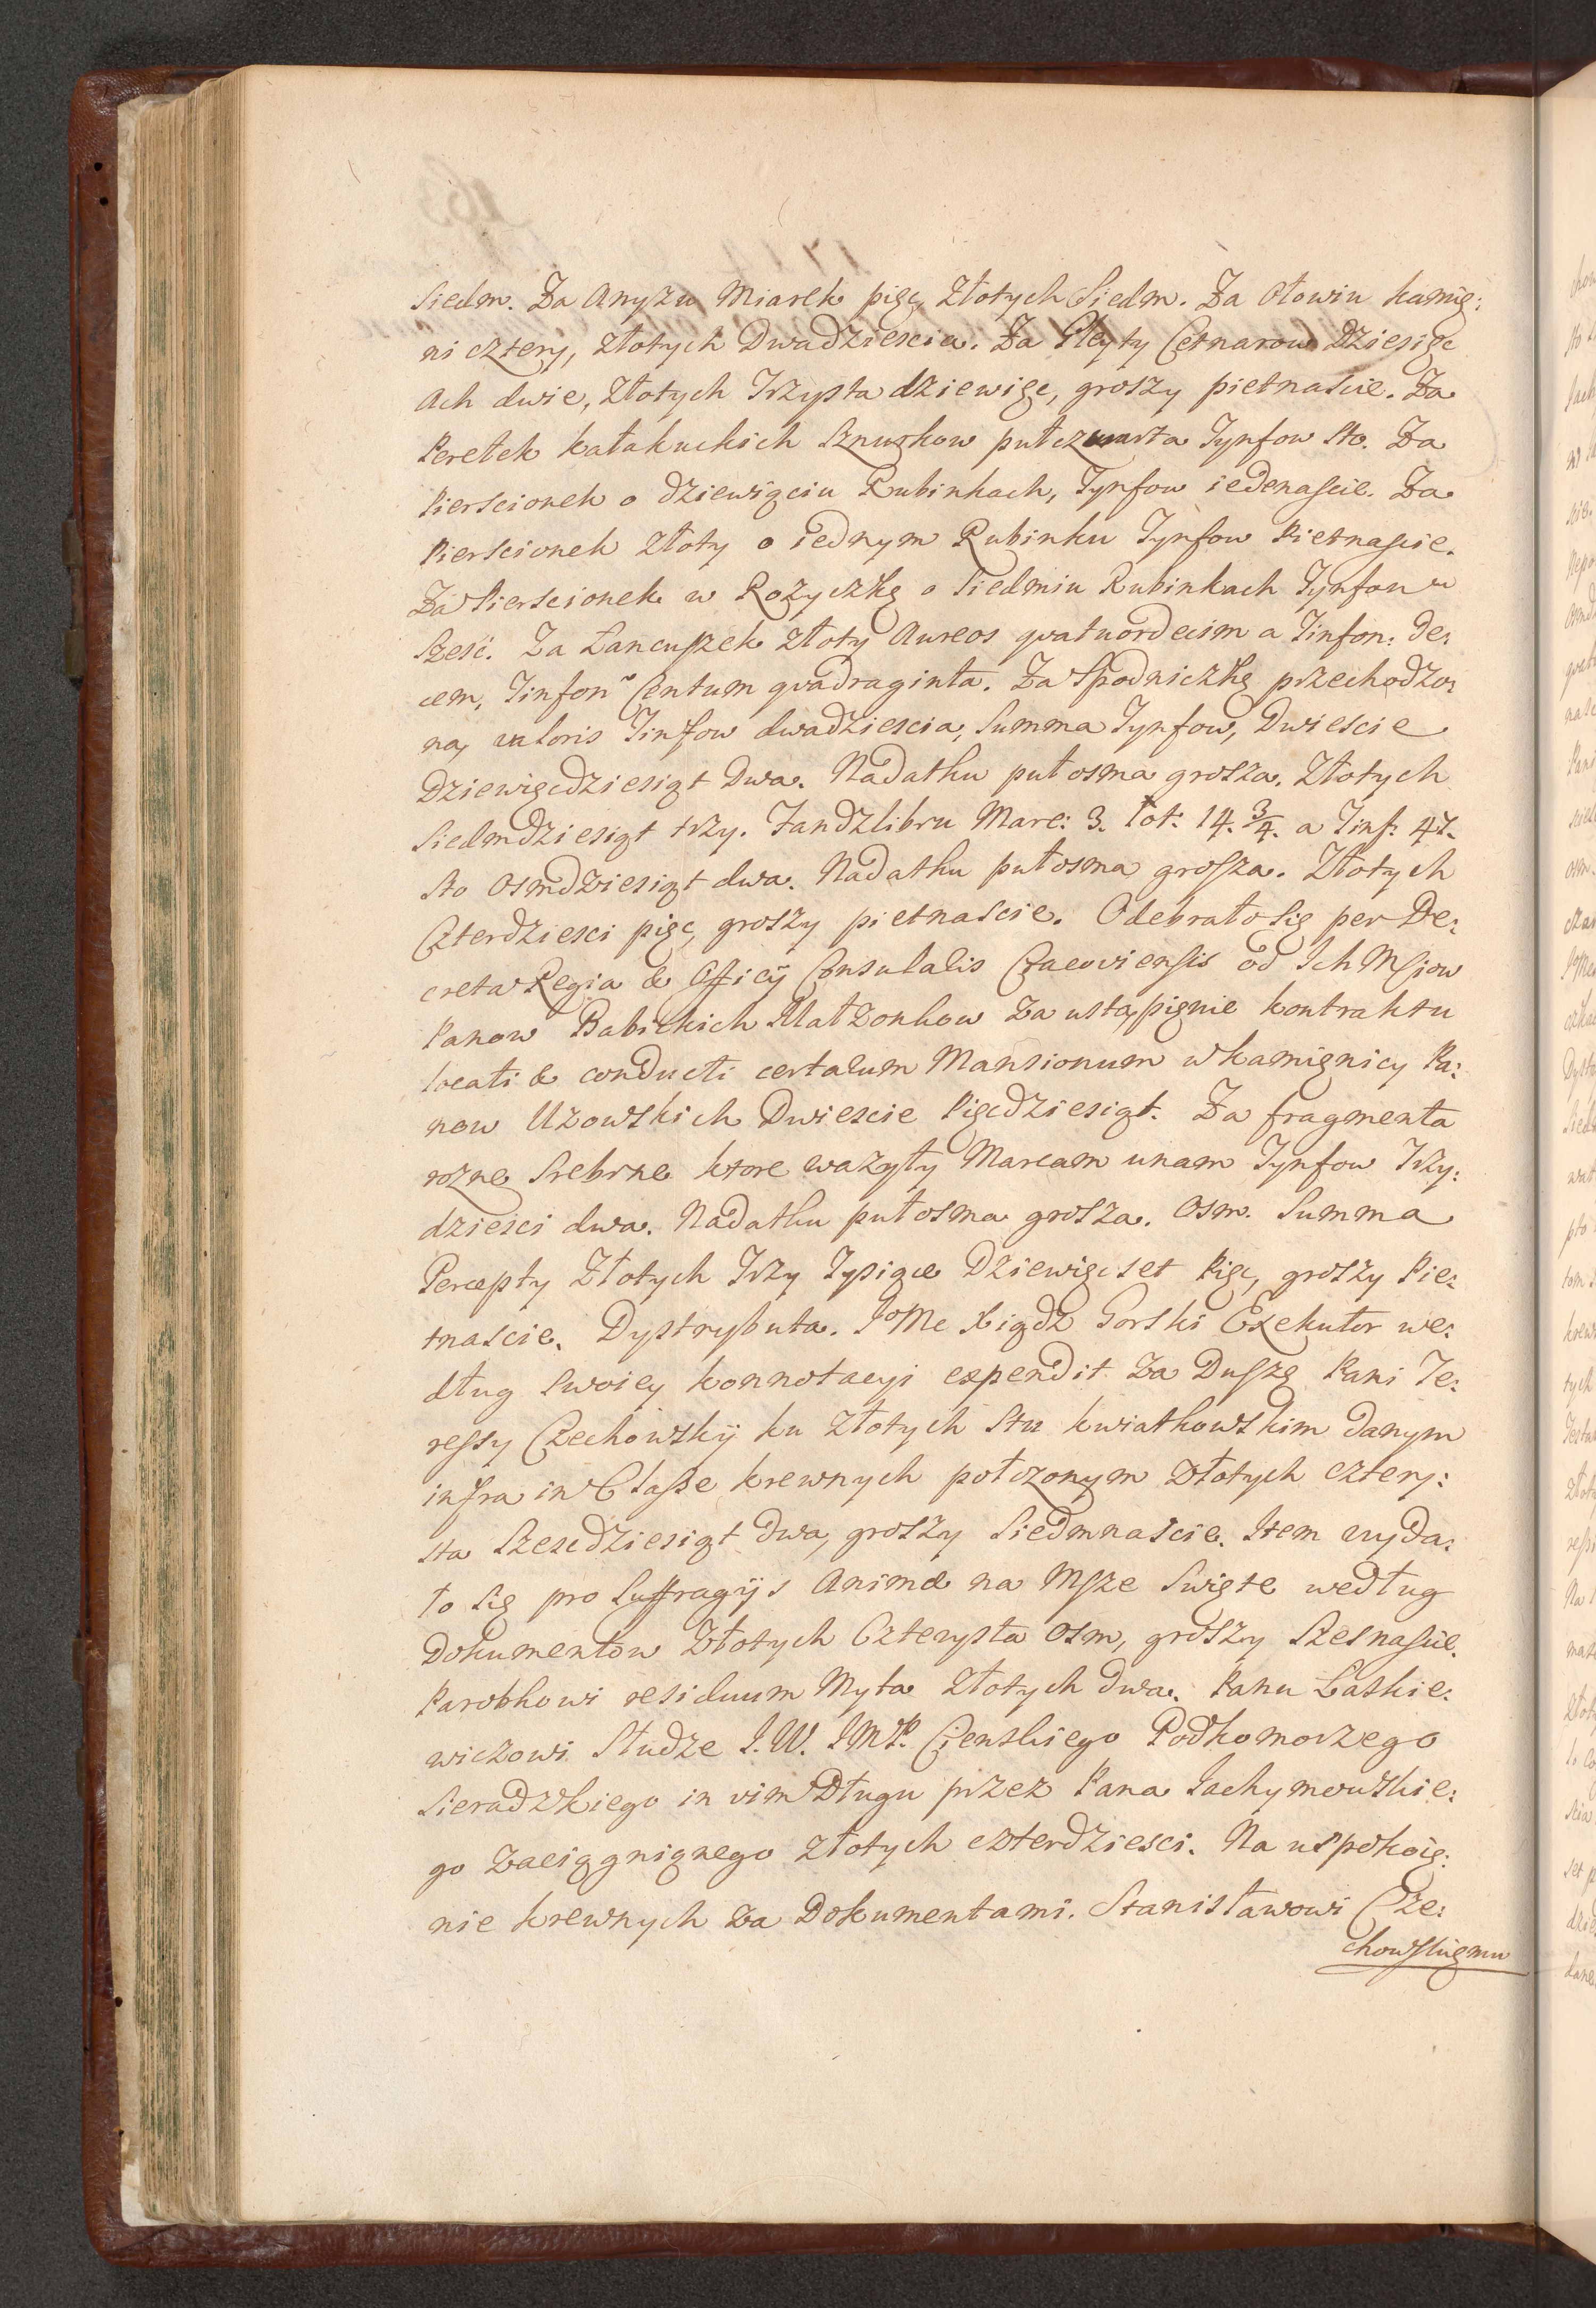 Siedm. Za Anyzu Miarek pięc, Złotych Siedm. Za Ołowiu kamię:
ni cztery, złotych Dwadziescia. Za Gleyty Cetnarow Dziesięc
Ach dwie, Złotych Trzysta dziewięc, groszy pietnascie. Za
Perełek kałakuckich Sznuzkow pułczwarta Tynfow sto. Za
Pierscionek o dziewięciu Rubinkach, Tynfow iedenascie. Za
Pierscionek Złoty o iednym Rubinku Tynfow Pietnascie.
Za Pierscionek w Rozyczkę o Siedmiu Rubinkach Tynfow
Szesć. Za Łancuszek złoty Aureos qvatuordecim a Tinfon: de:
cem, Tinfon Centum qvadraginta. Za Spodniczkę przechodzo:
ną valoris Tinfow dwadziescia, Summa Tynfow, Dwiescie
Dziewięcdziesiąt Dwa. Nadatku puł osma grosza. Złotych
Siedmdziesiąt trzy. Fandzlibru Marc: 3. Łot: 14. 3/4. a Tinf: 47.
sto Osmdziesiąt dwa. Nadatku puł osma grosza. Złotych
Czterdziesci pięc, groszy pietnascie. Odebrało się per De:
creta Regia & Officij Consulalis Cracoviensis od Ich Msciow
Panow Babickich Małzonkow za ustąpięnie kontraktu
locati & conducti certarum Mansionum w kamięnicy Pa:
now Uzowskich Dwiescie Pięcdziesiąt. Za fragmenta
rozne Srebrne ktore wazyły Marcam unam Tynfow Trzy:
dziesci dwa. Nadatku puł osma grosza. Osm. Summa
Percepty Złotych Trzy Tysiące Dziewięcset Pięc, groszy Pie:
tnascie. Dystrybuta. JoMc Xiądz Gorski Exekutor we:
dług swoiey konnotacyi expendit za Duszę Pani Te:
ressy Czechowskij ku Złotych Stu kwiatkowskim danym
infra in Classe krewnych połczonym Złotych cztery:
sta Szescdziesiąt dwa, groszy Siedmnascie. Item wyda:
ło się pro Suffragijs Animæ na Msze Swięte według
Dokumentow Złotych Czterysta Osm, groszy Szesnascie.
Parobkowi residuum Myta Złotych dwa. Panu Łaskie:
wiczowi Słudze J. W. JMP. Cienskiego Podkomorzego
Sieradzkiego in vim Długu przez Pana Jachymowskie:
go zaciągniąnego Złotych czterdziesci. Na uspokoię:
nie krewnych za Dokumentami. Stanisławowi Cze:
chowskięmu